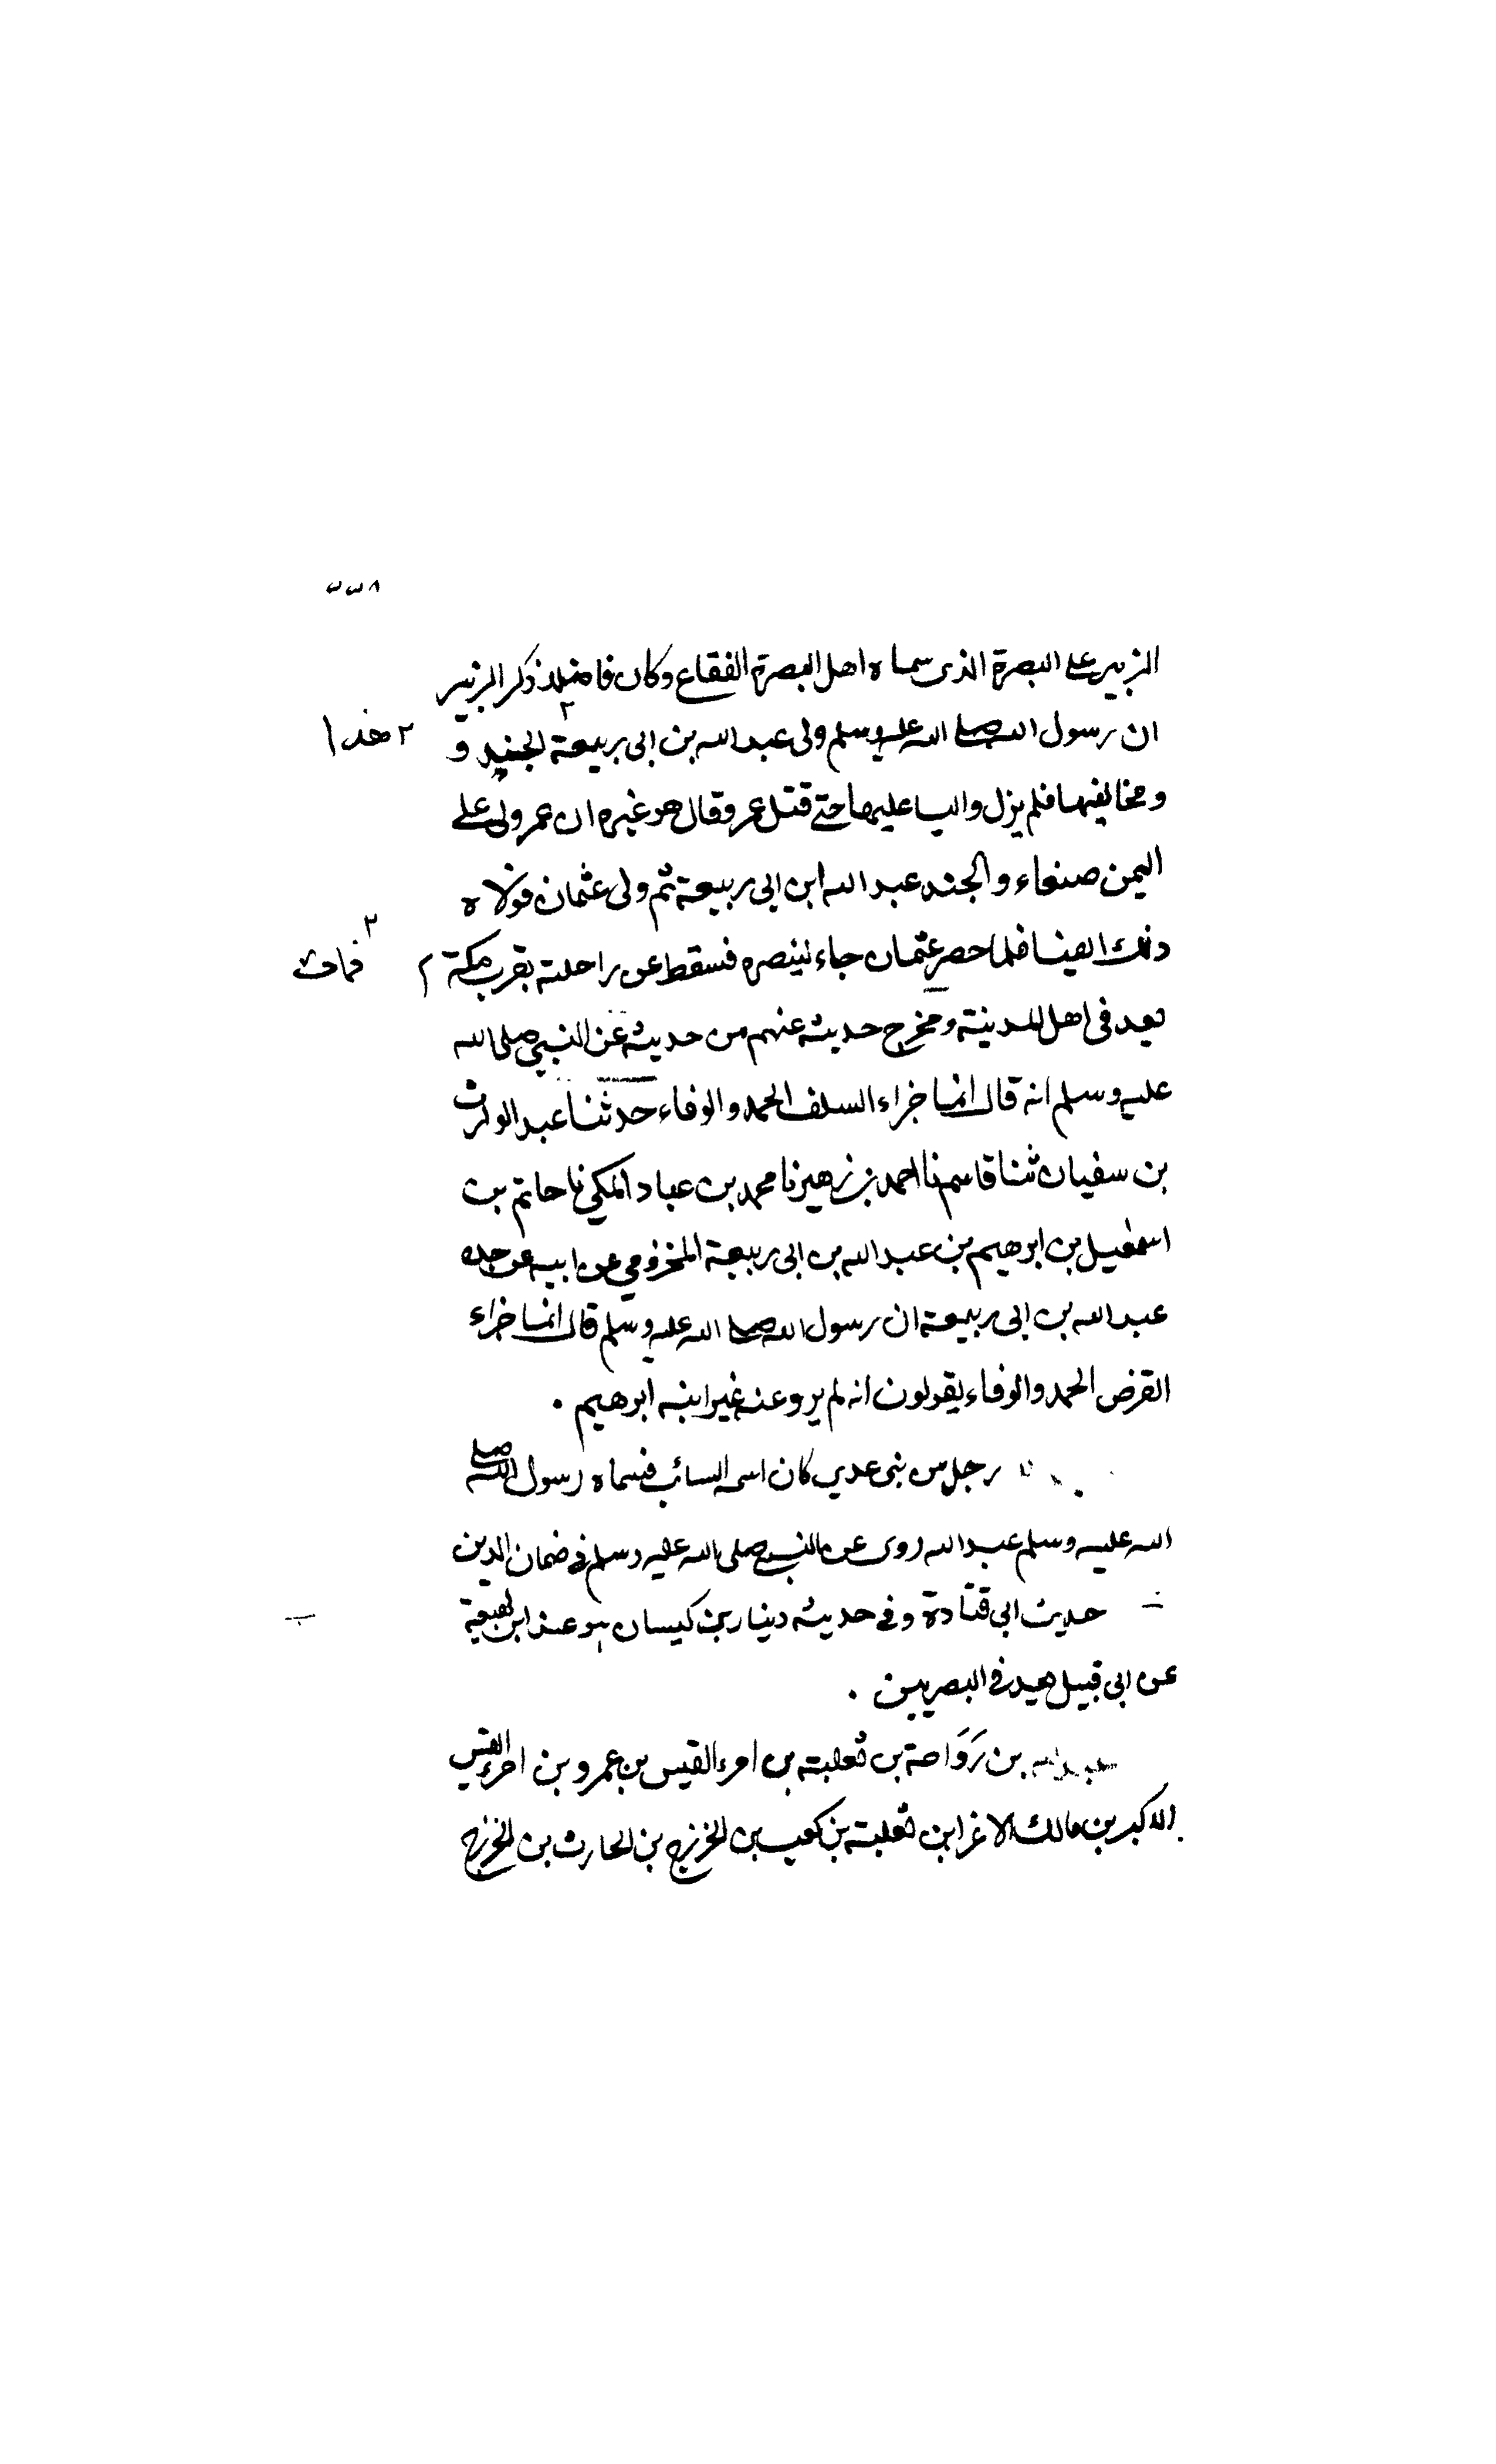 الزبير على البصرة الذى سماه اهل البصرة الفقاع وكان فاضلا ذكر الزبير
ان رسول الله صلى الله عليه وسلم ولى عبد الله بن ابى ربيعة الجند و
٢ هذا
ومخاليفها فلم يزل واليا عليها حتى قتل عمر وقال هو غيره ان عمر ولى على
اليمن صنعاء والجند عبد الله ابن ابى ربيعة ثم ولى عثمان فولاه
ذلك ايضا فلما حصر عثمان جاء لينصره فسقط عن راحلته بقرب مكة
٢ فمات
يعد فى اهل المدينة ومخرج حديثه عنهم من حديثه عن النبى صلى الله
عليه وسلم انه قال انما جزاء السلف الحمد والوفاء حدثنا عبد الوارث
بن سفيان ثنا قاسم نا احمد بن زهير نا محمد بن عباد المكي نا حاتم بن
اسمعيل بن ابرهيم بن عبد الله بن ابى ربيعة المخزومي عن ابيه عن جده
عبد الله بن ابى ربيعة ان رسول الله صلى الله عليه وسلم قال انما جزاء
القرض الحمد والوفاء يقولون انه لم يرو عنه غير ابنه ابرهيم .
رجل من بنى عدي كان اسمه السائب فسماه رسول الله صلى
الله عليه وسلم عبد الله روى عن النبى صلى الله عليه وسلم في ضمان الدين
حديث ابى قتادة وفى حديثه دينار بن كيسان هو عند ابن لهيعة
عن ابى قبيل يعد فى البصريين .
عبد الله بن رَوَاحة بن ثعلبة بن امرء القيس بن عمرو بن امرء القيس
الاكبر بن مالك الاغر ابن ثعلبة بن كعب بن الخزرج بن الحارث بن الخزرج